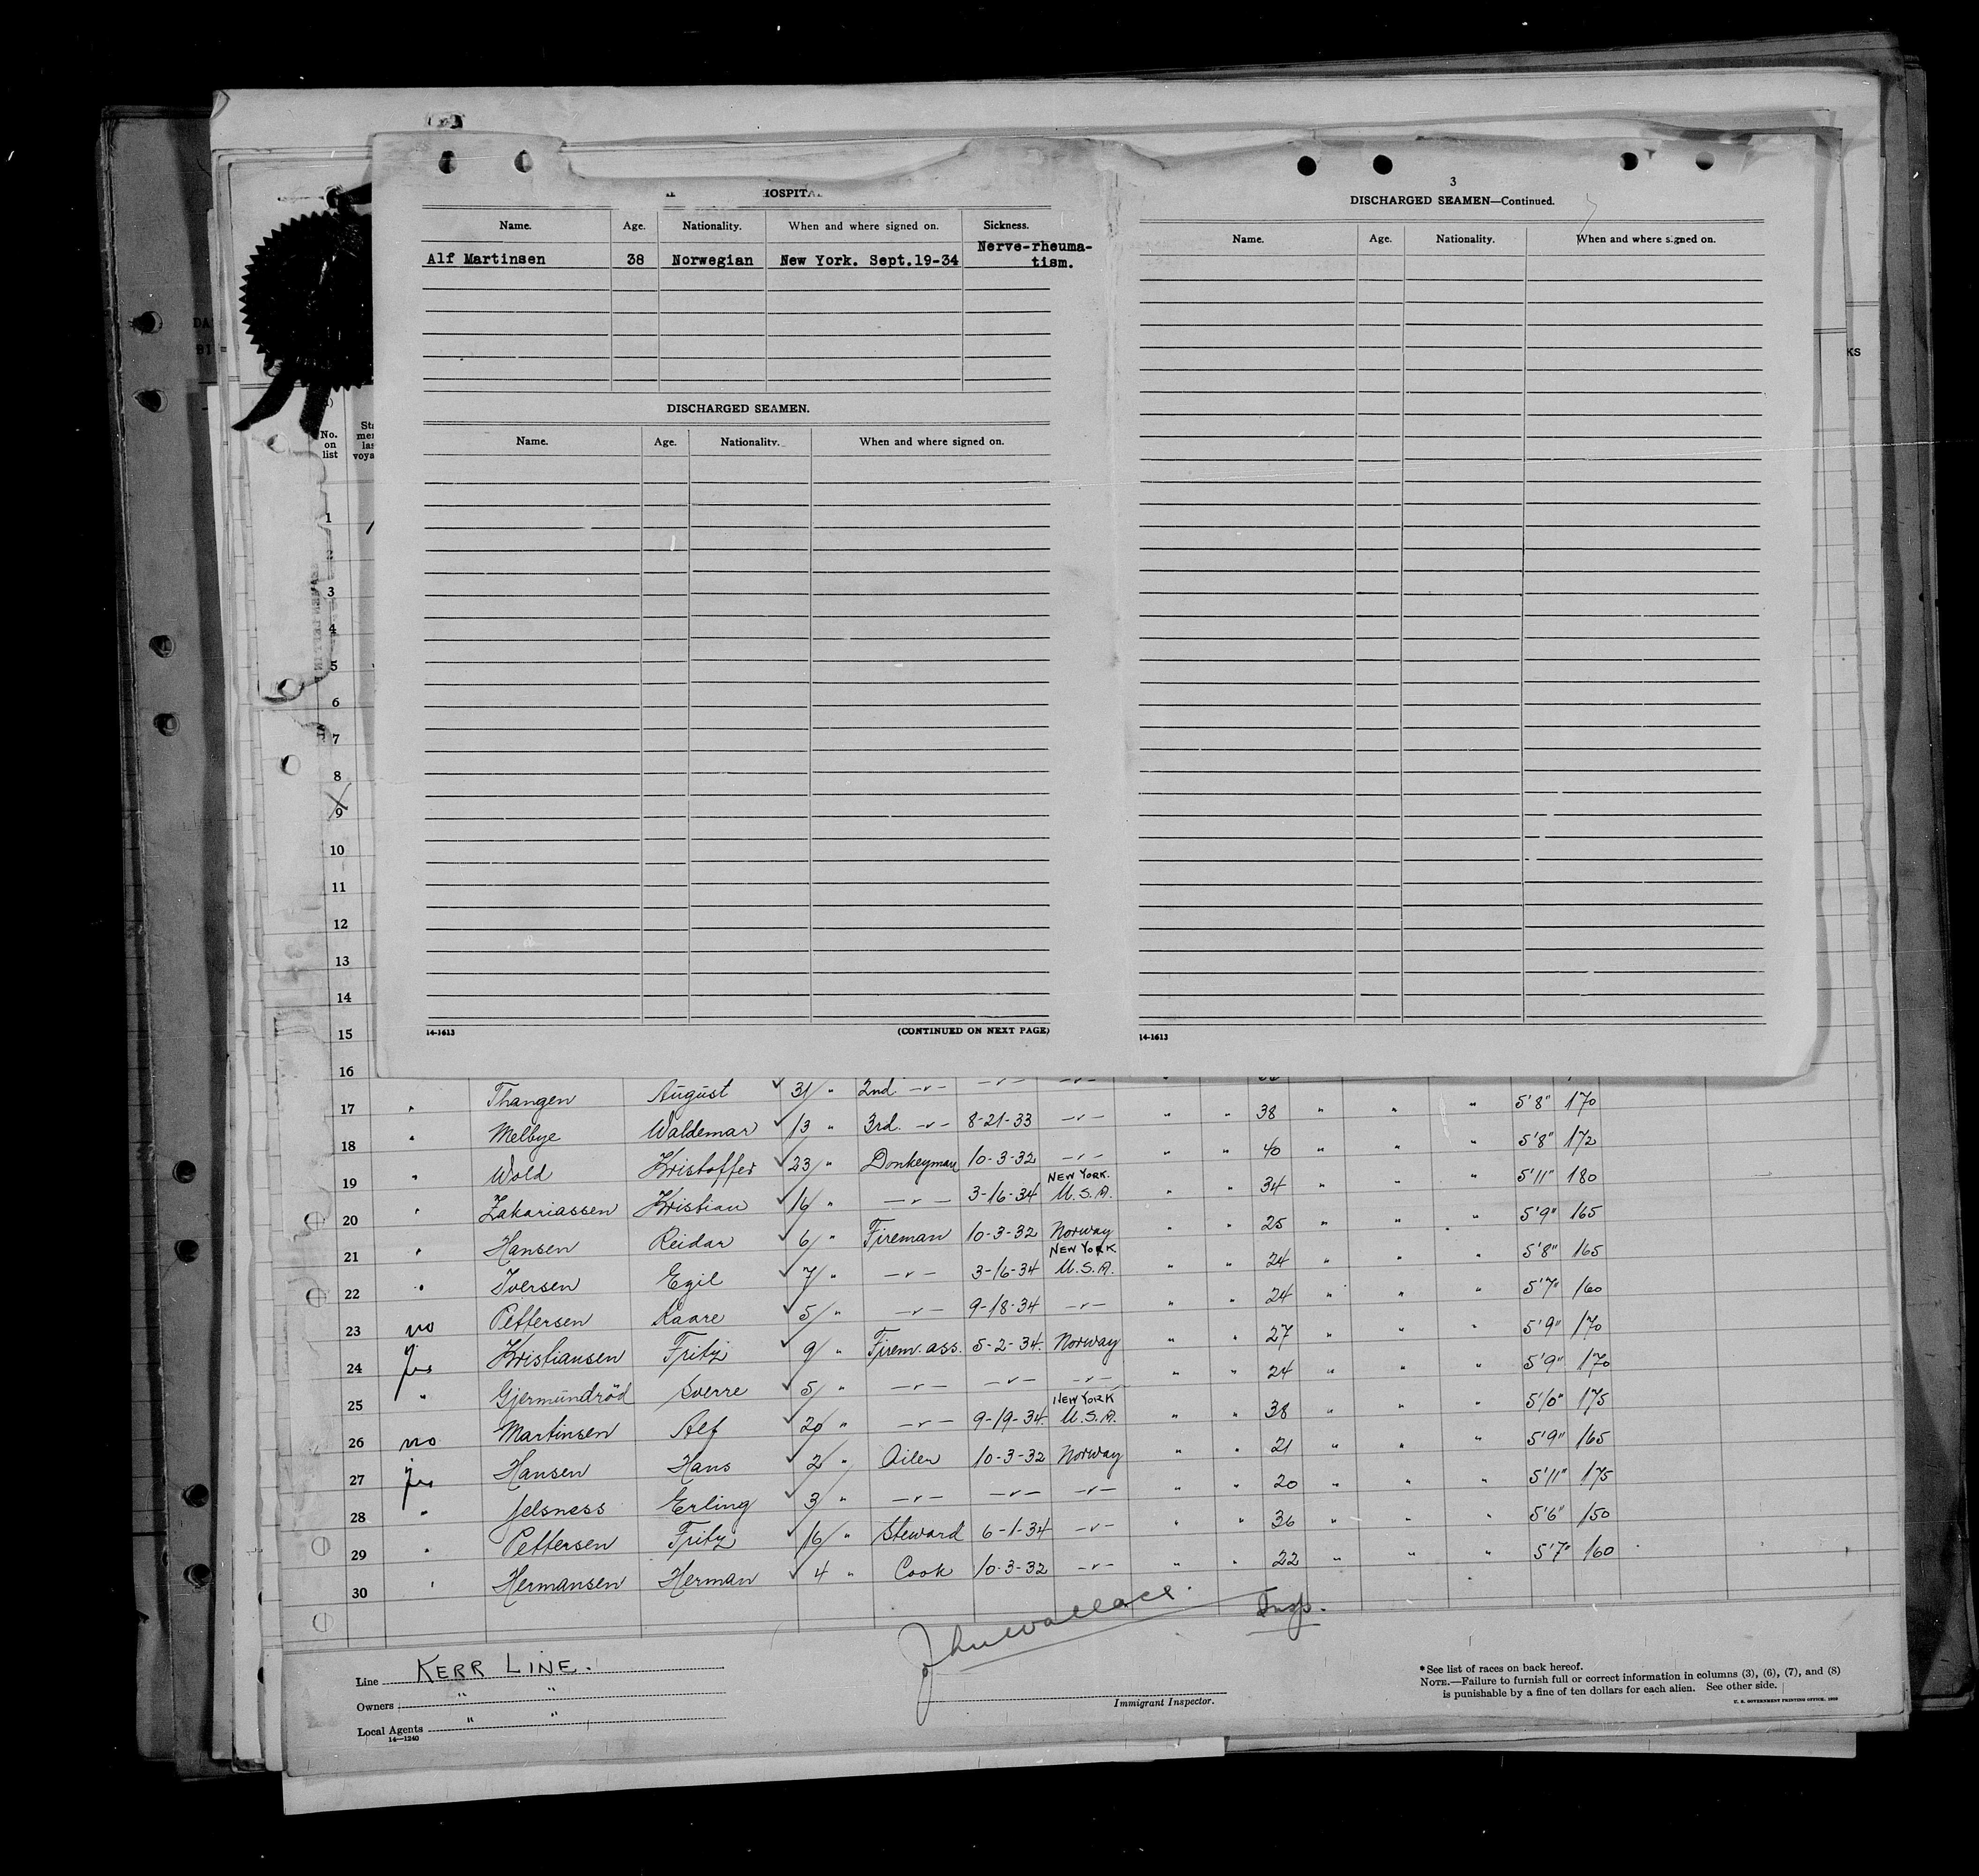 HOSPITA
Name. Age. Nationality. When and where signed on. Sickness.
Alf Martinsen 38 Norwegian New York. Sept.19-34 Nerve-rheuma-
tism.
DISCHARGED SEAMEN.
Name. Age. Nationality. When and where signed on.
14-1613 (CONTINUED ON NEXT PAGE)
3
DISCHARGED SEAMEN—Continued.
Name. Age. Nationality. When and where signed on.
14-1613
KS
No.
on
list
1
2
3
4
5
6
7
8
9
10
11
12
13
14
15
16
17 " Thangen August ✓ 31 " 2nd. -"- -"- -"-
18 " Melbye Waldemar ✓ 13 " 3rd. -"- 8-21-33 -"- " " 38 " " " 5'8" 170
19 " Wold Kristoffer ✓ 23 " Donkeyman 10-3-32 -"- " " 40 " " " 5'8" 172
20 " Zakariassen Kristian ✓ 16 " -"- 3-16-34 NEW YORK. U.S.A. " " 34 " " " 5'11" 180
21 " Hansen Reidar ✓ 6 " Fireman 10-3-32 Norway " " 25 " " " 5'9" 165
22 " Iversen Egil ✓ 7 " -"- 3-16-34 NEW YORK U.S.A. " " 24 " " " 5'8" 165
23 no Pettersen Kaare ✓ 5 " -"- 9-18-34 -"- " " 24 " " " 5'7" 160
24 yes Kristiansen Fritz ✓ 9 " Firem.ass. 5-2-34. Norway " " 27 " " " 5'9" 170
25 " Gjermundröd Sverre ✓ 5 " -"- -"- -"- " " 24 " " " 5'9" 170
26 no Martinsen Alf ✓ 20 " -"- 9-19-34. NEW YORK U.S.A. " " 38 " " " 5'10" 175
27 yes Hansen Hans ✓ 2 " Oiler 10-3-32 Norway " " 21 " " " 5'9" 165
28 " Jelsness Erling ✓ 3 " -"- -"- -"- " " 20 " " " 5'11" 175
29 " Pettersen Fritz ✓ 16 " Steward 6-1-34 -"- " " 36 " " " 5'6" 150
30 " Hermansen Herman ✓ 4 " Cook 10-3-32 -"- " " 22 " " " 5'7" 160
John Wallace. Insp.
Immigrant Inspector.
Line KERR LINE.
Owners " "
Local Agents " "
14—1240
*See list of races on back hereof.
NOTE.—Failure to furnish full or correct information in columns (3), (6), (7), and (8)
is punishable by a fine of ten dollars for each alien. See other side.
U. S. GOVERNMENT PRINTING OFFICE.